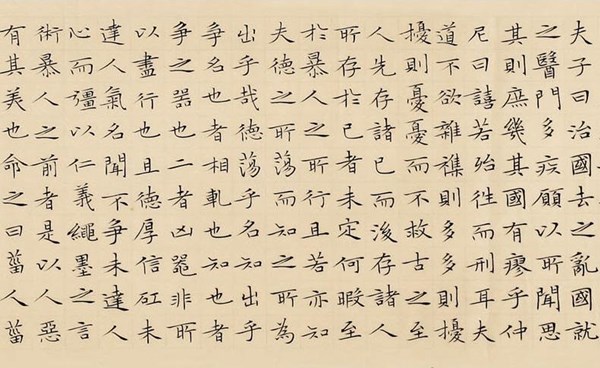 夫子曰治國去之亂國就
之醫門多疾願以所聞思
其則庶幾其國有瘳乎仲
尼曰譆若殆徃而刑耳夫
道不欲雜襍則多多則擾
擾則憂憂而不救古之至
人先存諸己而後存諸人
所存於己者未定何暇至
於暴人之所行且若亦知
夫德之所蕩而知之所為
出乎哉德蕩乎名知出乎
爭名也者相軋也知也者
爭之器也二者凶噐非所
以盡行也且德厚信矼未
達人氣名聞不爭未達人
心而彊以仁義繩墨之言
術暴人之前者是以人惡
有其美也命之曰菑人菑